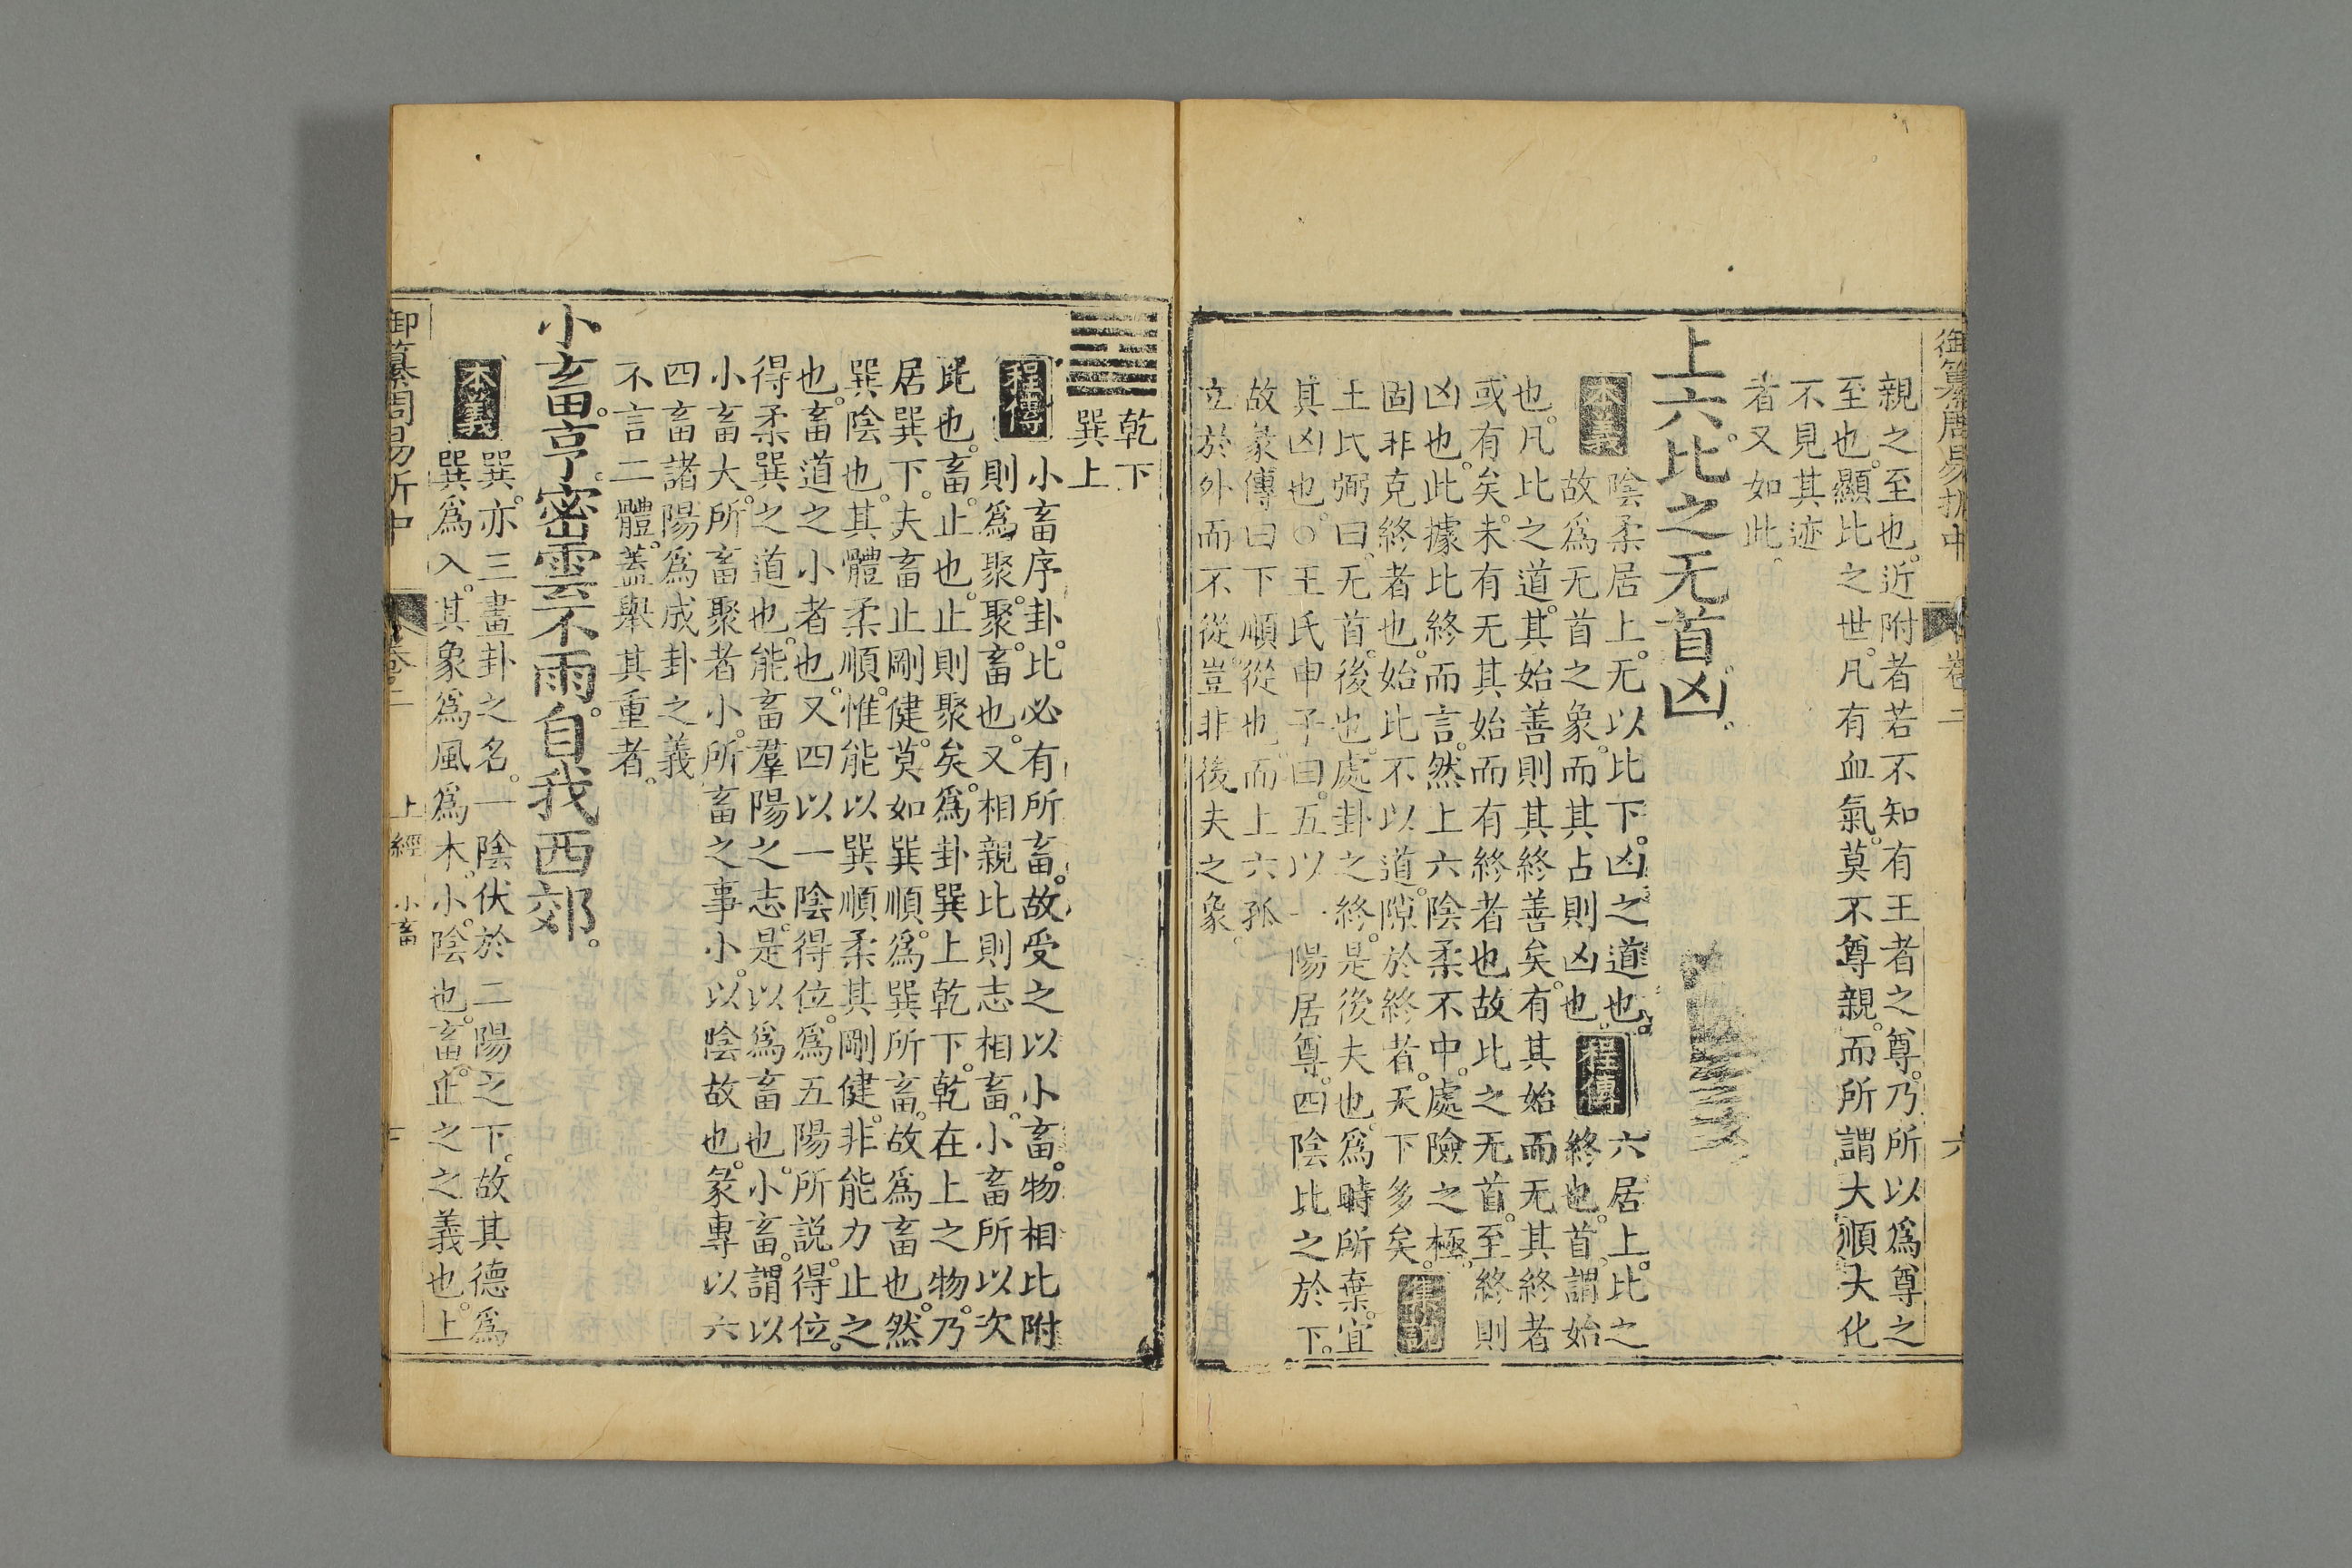 御纂周易折中 卷二 六
親之至也。近附者若不知有王者之尊。乃所以爲尊之
至也。顯比之世。凡有血氣。莫不尊親。而所謂大順大化
不見其迹
者又如此。
上六。比之无首。凶。
本義 陰柔居上。无以比下。凶之道也。
故爲无首之象。而其占則凶也。
程傳 六居上。比之
終也。首。謂始
也。凡比之道。其始善則其終善矣。有其始而无其終者
或有矣。未有无其始而有終者也故比之无首。至終則
凶也。此據比終而言。然上六陰柔不中。處險之極。
固非克終者也。始比不以道。隙於終者。天下多矣。
集說
王氏弼曰。无首。後也。處卦之終。是後夫也。爲時所棄。宜
其凶也。○王氏申子曰。五以一陽居尊。四陰比之於下。
故彖傳曰下順從也。而上六孤
立於外而不從。豈非後夫之象。
乾下
巽上
程傳 小畜序卦。比必有所畜。故受之以小畜。物相比附
則爲聚。聚。畜也。又相親比則志相畜。小畜所以次
比也。畜。止也。止則聚矣。爲卦巽上乾下。乾在上之物。乃
居巽下。夫畜止剛健。莫如巽順。爲巽所畜。故爲畜也。然
巽陰也。其體柔順。惟能以巽順柔其剛健。非能力止之
也。畜道之小者也。又四以一陰得位。爲五陽所説。得位。
得柔巽之道也。能畜羣陽之志。是以爲畜也。小畜。謂以
小畜大。所畜聚者小。所畜之事小。以陰故也。彖專以六
四畜諸陽爲成卦之義
不言二體。蓋舉其重者。
小畜。亨。密雲不雨。自我西郊。
本義 巽。亦三畫卦之名。一陰伏於二陽之下。故其德爲
巽爲入。其象爲風爲木。小。陰也。畜。止之之義也。上
御纂周易折中 卷二 上經 小畜 七